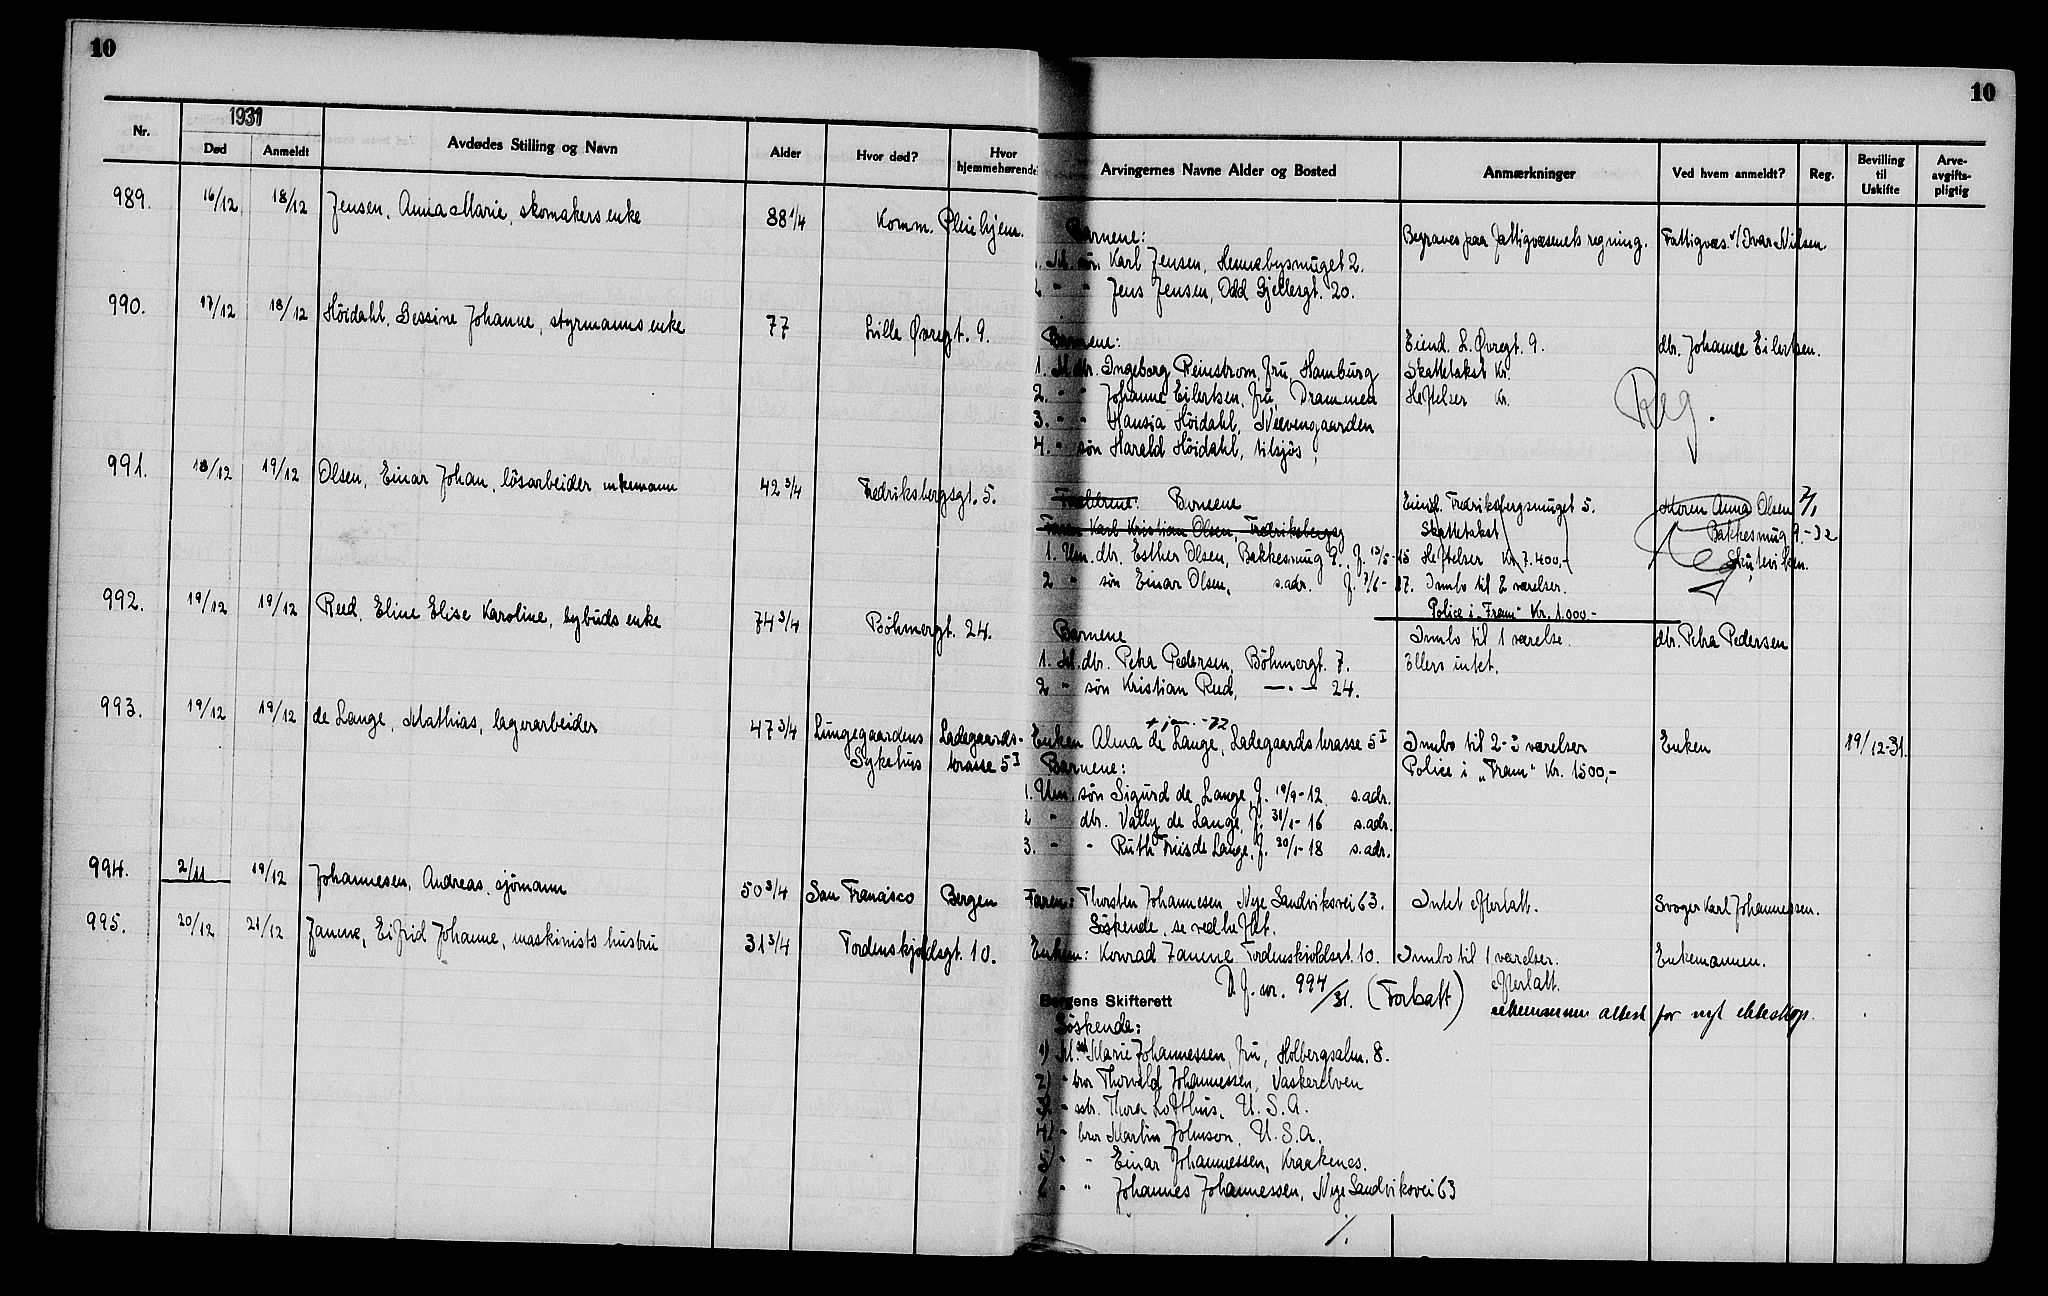 10
10
Nr.
1931
Død
Anmeldt
Avdødes Stilling og Navn
Alder
Hvor død?
Hvor hjemmehørende
Arvingernes Navne Alder og Bosted
Anmærkninger
Ved hvem anmeldt?
Reg.
Bevilling til Uskifte
Arve-avgifts-pligtig
989. 16/12 18/12 Jensen, Anna Marie, skomakers enke 88 1/4 Komm. Pleiehjem.
Barnene:
M. søn Karl Jensen, 2.
" " Jens Jensen, Odd Gjellesgt. 20.
Begraves paa fattigvæsenets regning.
Fattigvæs. v/ Ivar Nilsen
990. 17/12 18/12 Höidahl, Gessine Johanne, styrmanns enke 77 Lille Øvregt. 9.
Barnene:
1. M. dtr. Ingeborg Reinstrom, fru, Hamburg
2. " " Johanne Eilertsen, fru, Drammen
3. " " Hansia Höidahl, Neevengaarden
4. " søn Harald Höidahl, tilsjøs,
Eiend. L. Øvregt. 9.
Skattetakst Kr.
Heftelser Kr.
dtr. Johanne Eilertsen.
Reg.
991. 18/12 19/12 Olsen, Einar Johan, lösarbeider enkemann 42 3/4 Fredriksbergsgt. 5.
Foreldrene: Barnene
Faren Karl Kristian Olsen, Fredriksbergsg
1. Um. dtr. Esther Olsen, Bakkesmug 9., f. 13/5-15
2 " søn Einar Olsen, s. adr. f. 7/6-17.
Eiend. Fredriksbergsmuget 5.
Skattetakst
Heftelser Kr. 7.400,-
Innbo til 2 værelser.
Police i "Fram" Kr. 1.000.-
Moren Anna Olsen
Bakkesmug 9. - 32
Skuteviken.
Reg.
992. 19/12 19/12 Reed, Eline Elise Karoline, bybuds enke 74 3/4 Böhmergt. 24.
Barnene
1. M. dtr. Petra Pedersen, Böhmergt. 7.
2 " søn Kristian Reed, — " — 24.
Innbo til 1 værelse.
Ellers intet.
dtr. Petra Pedersen
993. 19/12 19/12 de Lange, Mathias, lagerarbeider 47 3/4 Lungegaardens Sykehus Ladegaards-terasse 5 I
Enken Alma de Lange, Ladegaards terasse 5 I
Barnene:
1. Um. søn Sigurd de Lange, f. 19/9-12 s. adr.
2 " dtr. Vally de Lange, f. 31/1-16 s. adr.
3. " " Ruth Friis de Lange, f. 30/1-18 s. adr.
Innbo til 2-3 værelser
Police i "Fram" Kr. 1500,-
Enken
19/12-31.
994. 2/11 19/12 Johannesen, Andreas, sjömann 50 3/4 San Francisco Bergen
Faren: Thorsten Johannesen, Nye Sandviksvei 63.
Söskende, se vedheftet.
Intet efterlatt.
Svoger Karl Johannessen.
995. 20/12 21/12 Janene, Eifrid Johanne, maskinists hustru 31 3/4 Tordenskjoldsgt. 10.
Enkem: Konrad Janene Tordenskjoldsgt. 10.
Innbo til 1 værelser.
efterlatt.
Enkemannen.
enkemannen attest for nyt ekteskap.
Bergens Skifterett
D.f. nr. 994/31. (Forlatt)
Söskende:
1) M. Marie Johannessen, fru, Holbergsalm. 8.
2) " bror Thorvald Johannessen, Vaskerelven
3) " sstr. Thora Lofthus, U.S.A.
4) " bror Martin Johnson, U.S.A.
5) " " Einar Johannessen, Kraakenes.
6 " " Johannes Johannessen, Nye Sandviksvei 63